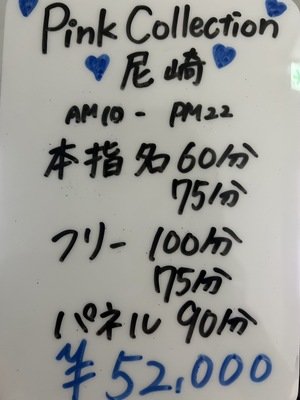 Pink Collection
尼崎
AM10 - PM22
本指名 60分
75分
フリー 100分
75分
パネル 90分
¥52,000